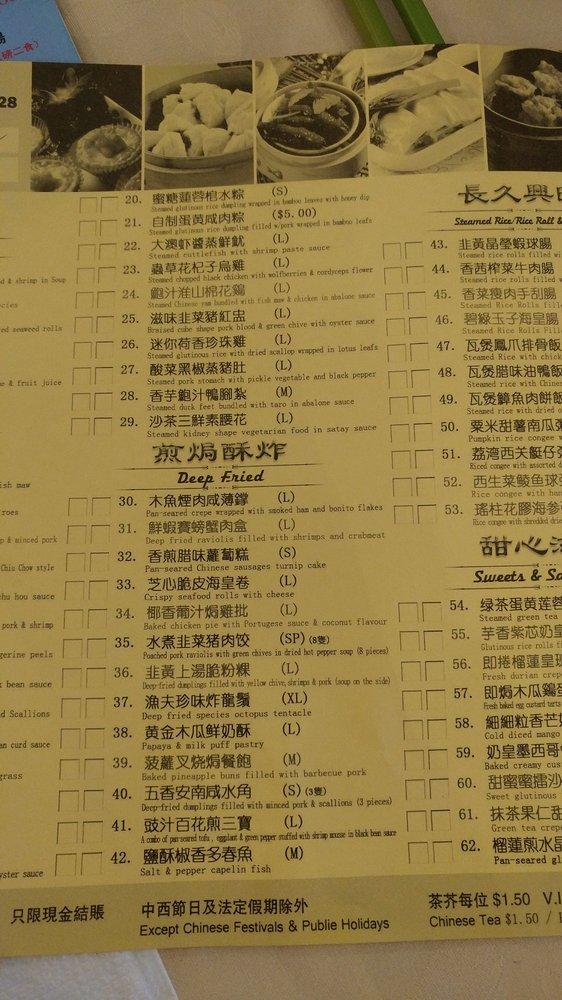 湯
28
20. 蜜糖蓮蓉棺水粽 (S)
Steamed glutinous rice dumpling wrapped in bamboo leaves with honey dip
21. 自制蛋黄咸肉粽 ($5.00)
Steamed glutinous rice dumpling filled w/pork wrapped in bamboo leafs
22. 大澳虾醬蒸鮮魷 (L)
Steamed cuttlefish with shrimp paste sauce
23. 蟲草花杞子烏雞 (L)
Steamed chopped black chicken with wolfberries & cordyceps flower
24. 鮑汁淮山棉花鷄 (L)
Steamed Chinese yam bundled with fish maw & chicken in abalone sauce
25. 滋味韭菜豬紅盅 (L)
Braised cube shape pork blood & green chive with oyster sauce
26. 迷你荷香珍珠雞 (L)
Steamed glutinous rice with dried scallop wrapped in lotus leafs
27. 酸菜黑椒蒸豬肚 (L)
Steamed pork stomach with pickle vegetable and black pepper
28. 香芋鮑汁鴨腳紮 (M)
Steamed duck feet bundled with taro in abalone sauce
29. 沙茶三鮮素腰花 (L)
Steamed kidney shape vegetarian food in satay sauce
煎焗酥炸
Deep Fried
30. 木魚煙肉咸薄撐 (L)
Pan-seared crepe wrapped with smoked ham and bonito flakes
31. 鮮蝦賽螃蟹肉盒 (L)
Deep fried raviolis filled with shrimps and crabmeat
32. 香煎腊味蘿蔔糕 (S)
Pan-seared Chinese sausages turnip cake
33. 芝心脆皮海皇卷 (L)
Crispy seafood rolls with cheese
34. 椰香葡汁焗雞批 (L)
Baked chicken pie with Portugese sauce & coconut flavour
35. 水煮韭菜猪肉饺 (SP) (8隻)
Poached pork raviolis with green chives in dried hot pepper soup (8 pieces)
36. 韭黃上湯脆粉粿 (L)
Deep-fried dumplings filled with yellow chive, shrimps & pork (soup on the side)
37. 漁夫珍味炸龍鬚 (XL)
Deep fried species octopus tentacle
38. 黄金木瓜鲜奶酥 (L)
Papaya & milk puff pastry
39. 菠蘿叉烧焗餐飽 (M)
Baked pineapple buns filled with barbecue pork
40. 五香安南咸水角 (S) (3隻)
Deep-fried dumplings filled with minced pork & scallions (3 pieces)
41. 豉汁百花煎三寶 (L)
A combo of pan-seared tofu, eggplant & green pepper stuffed with shrimp mousse in black bean sauce
42. 鹽酥椒香多春魚 (M)
Salt & pepper capelin fish
d & shrimp in Soup
ecies
ed seaweed rolls
e & fruit juice
ish maw
roes
p & minced pork
Chiu Chow style
chu hou sauce
pork & shrimp
gerine peels
k bean sauce
d Scallions
an curd sauce
grass
yster sauce
長久興
Steamed Rice/Rice Roll &
43. 韭黃晶瑩蝦球腸
Steamed rice rolls filled wi
44. 香茜榨菜牛肉腸
Steamed rice rolls filled
45. 香菜瘦肉手刮腸
Steamed Rice Rolls fil
46. 碧綠玉子海皇腸
Steamed Rice Rolls Fille
47. 瓦煲鳳爪排骨飯
Steamed Rice with chick
48. 瓦煲腊味油鴨飯
Steamed rice with Chines
49. 瓦煲鱆魚肉餅飯
Steamed rice with dried o
50. 粟米甜薯南瓜
Pumpkin rice congee w
51. 荔湾西关艇仔
Riced congee with assorted d
52. 西生菜鲮鱼球
Rice congee with han
53. 瑤柱花膠海参
Rice congee with shredded drie
甜心
Sweets & Sa
54. 绿茶蛋黄莲蓉
Steamed green tea
55. 芋香紫芯奶皇
Glutinous rice rolls f
56. 即捲榴蓮皇
Fresh durian crep
57. 即焗木瓜鷄蛋
Fresh baked egg custard tarts
58. 細細粒香芒
Cold diced mango
59. 奶皇墨西哥
Baked creamy cus
60. 甜蜜蜜擂沙
Sweet glutinous
61. 抹茶果仁甜
Green tea crep
62. 榴蓮煎水晶
Pan-seared gl
只限現金結賬
中西節日及法定假期除外
Except Chinese Festivals & Publie Holidays
茶芥每位 $1.50 V.I
Chinese Tea $1.50 /